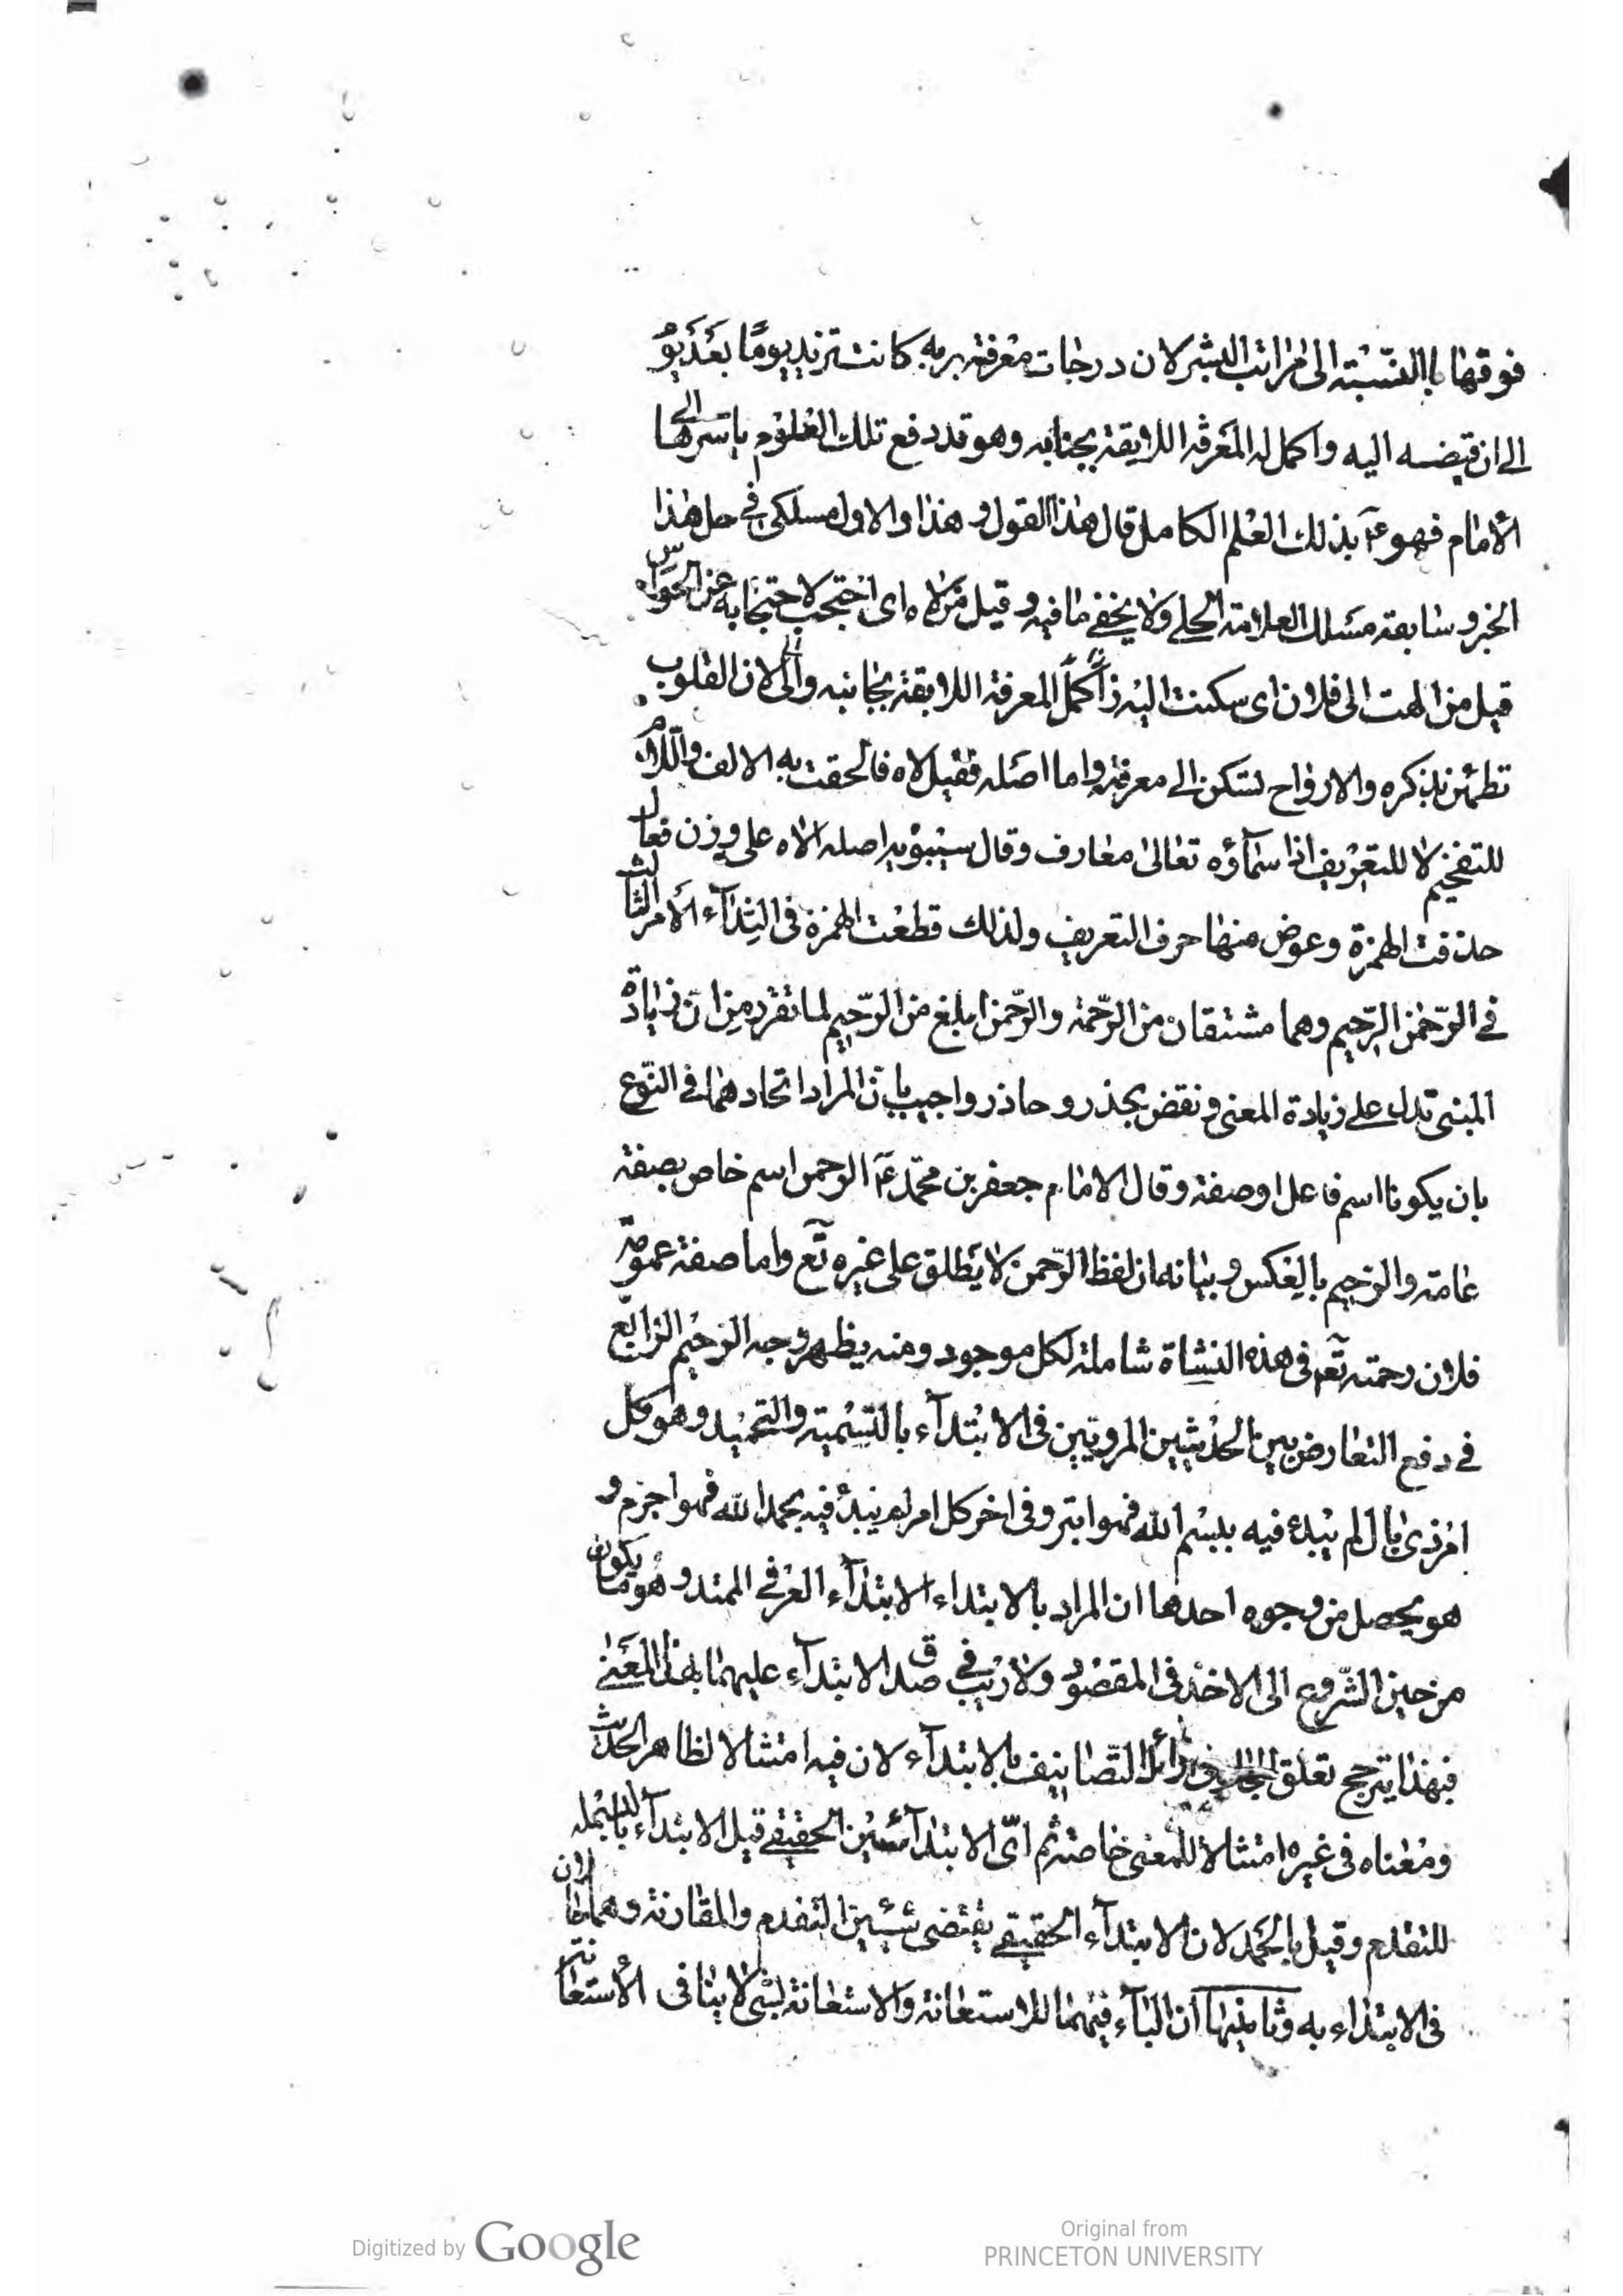 فوقها باالنسبته الى مراتب البشر لان درجات معرفته بربه كانت تزيد يوما بعد يو
الى ان قبضه اليه واكمل له المعرفة اللايقة بجنابه وهو قد دفع تلك العلوم باسرها الى
الامام فهو ع بذلك العلم الكامل قال هذا القول و هذا والاول مسلكى فى حل هذا
الخبر و سابقه مسلك العلامة الحلى ولا يخفى ما فيه و قيل من لاه اى احتجب لاحتجابه عن الحواس
قيل من الهت الى فلان اى سكنت اليه اكمل المعرفة اللايقة بجانبه و لان القلوب
تطمئن بذكره والارواح تسكن الى معرفته واما اصله فقيل لاه فالحقت به الالف واللام
للتفخيم لا للتعريف اذا سماؤه تعالى معارف وقال سيبويه اصله الاه على وزن فعال
حذفت الهمزة وعوض منها حرف التعريف ولذلك قطعت الهمزة فى النداء الامر الثالث
فى الرحمن الرحيم وهما مشتقان من الرحمة والرحمن ابلغ من الرحيم لما تقرد من ان زيادة
المبنى تدل على زيادة المعنى و نقض بحذر و حاذر واجيب بان المراد اتحادهما فى النوع
بان يكونا اسم فاعل او صفة وقال الامام جعفر بن محمد ع الرحمن اسم خاص بصفة
عامة والرحيم بالعكس و بيانه ان لفظ الرحمن لا يطلق على غيره تع واما صفة عمومه
فلان رحمته تع فى هذه النشاة شاملة لكل موجود ومنه يظهر وجه الرحيم الرابع
فى دفع التعارض بين الحديثين المرويين فى الابتداء بالتسمية والتحميد وهو كل
امر ذى بال لم يبدء فيه ببسم الله فهو ابتر وفى اخر كل امر لم يبدء فيه بحمد الله فهو اجزم و
هو يحصل من وجوه احدها ان المراد بالابتداء الابتداء العرفى الممتد و هو ما يكون
من حين الشروع الى الاخذ فى المقصود ولا ريب فى صدق الابتداء عليهما بهذا المعنى
فبهذا يترجح تعلق فى اوائل التصانيف بالابتداء لان فيه امتثالا لظاهر الحديث
ومعناه فى غيره امتثالا للمعنى خاصة ثم اى الابتدائين الحقيقى قيل الابتداء بالبسمله
للتقدم وقيل بالحمد لان الابتداء الحقيقى يقتضى شيئين التقدم والمقارنة وهما لان
فى الابتداء به وثانيها ان الباء فيهما للاستعانة والاستعانة بشئ لا ينافى الاستعا
Digitized by Google
Original from
PRINCETON UNIVERSITY